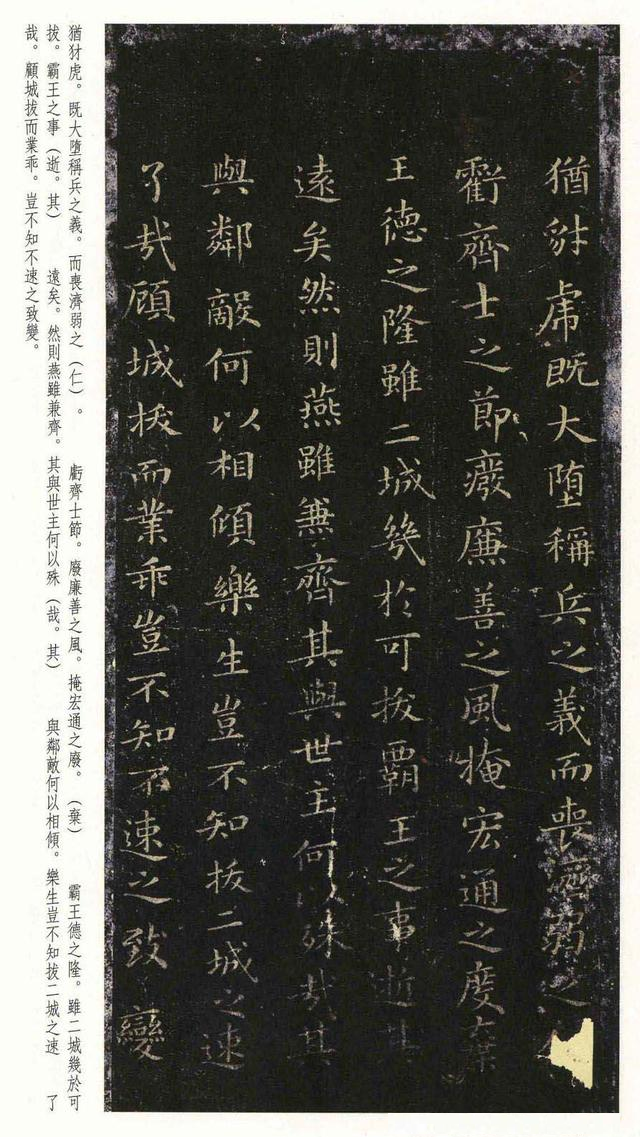 猶豺虎既大墮稱兵之義而喪濟弱之
虧齊士之節廢廉善之風掩宏通之度棄
王德之隆雖二城幾於可拔霸王之事逝其
遠矣然則燕雖兼齊其與世主何以殊哉其
與鄰敵何以相傾樂生豈不知拔二城之速
了哉顧城拔而業乖豈不知不速之致變
猶犲虎。既大墮稱兵之義。而喪濟弱之（仁）。 虧齊士節。廢廉善之風。掩宏通之廢。（棄） 霸王德之隆。雖二城幾於可
拔。霸王之事（逝。其） 遠矣。然則燕雖兼齊。其與世主何以殊（哉。其） 與鄰敵何以相傾。樂生豈不知拔二城之速 了
哉。顧城拔而業乖。豈不知不速之致變。